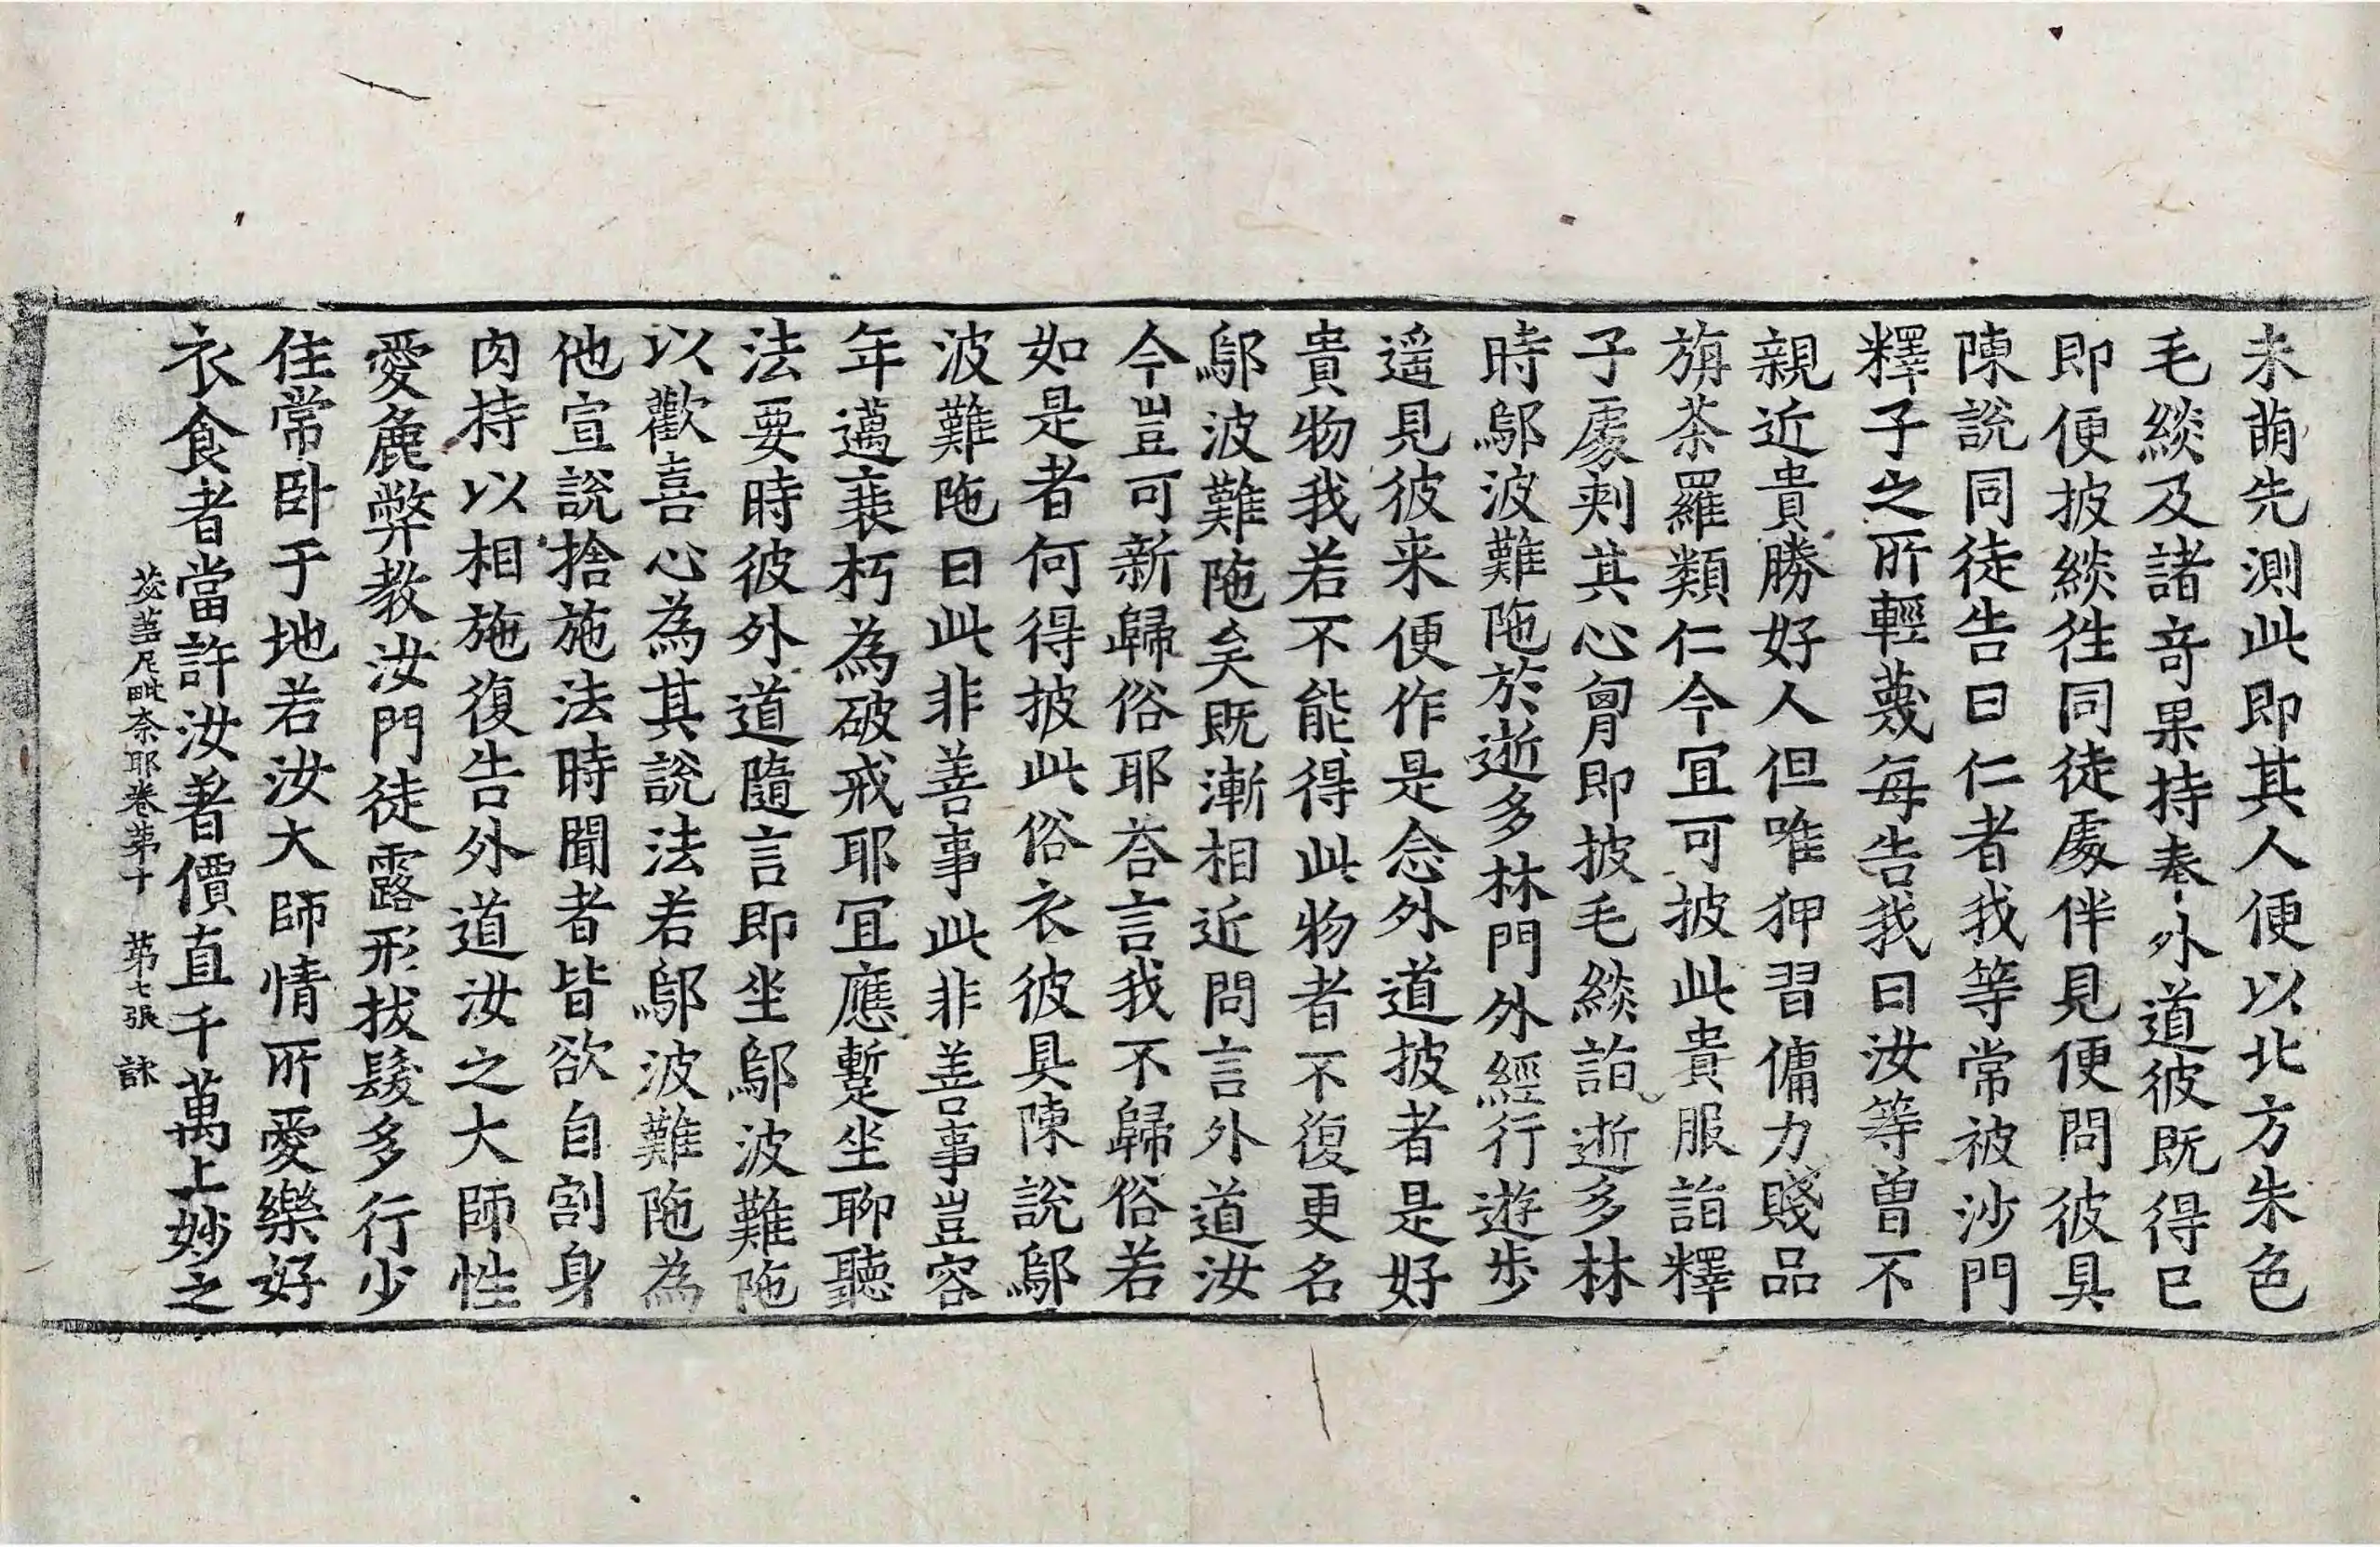 未萌先測此即其人便以北方朱色
毛緂及諸竒果持奉外道彼既得已
即便披緂往同徒處伴見便問彼具
陳說同徒告曰仁者我等常被沙門
釋子之所輕蔑每告我曰汝等曽不
親近貴勝好人但唯狎習傭力賤品
旃茶羅類仁今冝可披此貴服詣釋
子處刾其心胷即披毛緂詣逝多林
時鄔波難陁於逝多林門外經行遊步
遥見彼来便作是念外道披者是好
貴物我若不能得此物者不復更名
鄔波難陁矣既漸相近問言外道汝
今豈可新歸俗耶荅言我不歸俗若
如是者何得披此俗衣彼具陳說鄔
波難陁曰此非善事此非善事豈容
年邁衰朽為破戒耶冝應蹔坐聊聽
法要時彼外道隨言即坐鄔波難陁
以歡喜心為其說法若鄔波難陁為
他宣說捨施法時聞者皆欲自割身
肉持以相施復告外道汝之大師性
愛麁弊教汝門徒露形拔髮多行少
住常卧于地若汝大師情所愛樂好
衣食者當許汝著價直千萬上妙之
苾蒭尼毗奈耶卷第十 第七張 詠